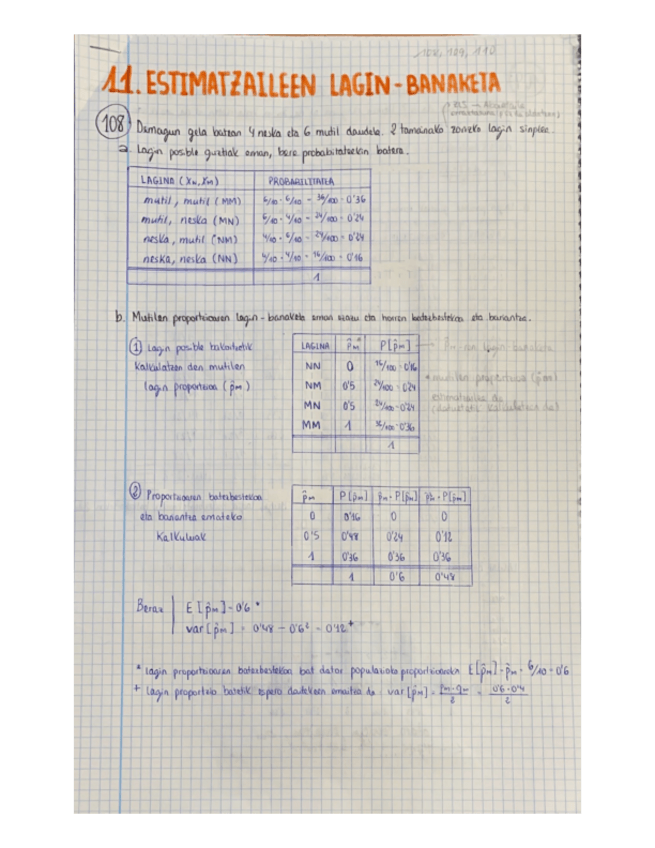 108, 109, 110
11. ESTIMATZAILEEN LAGIN-BANAKETA
108 Demagun gela batean 4 neska eta 6 mutil daudela. 2 tamainako zorizko lagin sinplea.
a. Lagin posible guztiak eman, bere probabilitatekin batera.
LAGINA (X₁, X₂) PROBABILITATEA
mutil, mutil (MM) 6/10 · 6/10 = 36/100 = 0'36
mutil, neska (MN) 6/10 · 4/10 = 24/100 = 0'24
neska, mutil (NM) 4/10 · 6/10 = 24/100 = 0'24
neska, neska (NN) 4/10 · 4/10 = 16/100 = 0'16
1
b. Mutilen proportzioaren lagin-banaketa eman ezazu eta horren batezbestekoa eta bariantza.
① Lagin posible bakoitzetik
kalkulatzen den mutilen
lagin proportzioa (p̂m)
LAGINA p̂m* P[p̂m]
NN 0 16/100 = 0'16
NM 0'5 24/100 = 0'24
MN 0'5 24/100 = 0'24
MM 1 36/100 = 0'36
1
p̂m-ren lagin banaketa
* mutilen proportzioa (p̂m)
estimatzailea da
(datuetatik kalkulatzen da)
② Proportzioaren batezbestekoa
eta bariantza emateko
kalkuluak
p̂m P[p̂m] p̂m · P[p̂m] p̂²m · P[p̂m]
0 0'16 0 0
0'5 0'48 0'24 0'12
1 0'36 0'36 0'36
1 0'6 0'48
Beraz E[p̂m] = 0'6 *
var[p̂m] = 0'48 - 0'6² = 0'12 +
* lagin proportzioaren batezbestekoa bat dator populazioko proportzioarekin E[p̂m] = pm = 6/10 = 0'6
+ lagin proportzio batetik espero daitekeen emaitza da: var[p̂m] = pm·qm/2 = 0'6·0'4/2